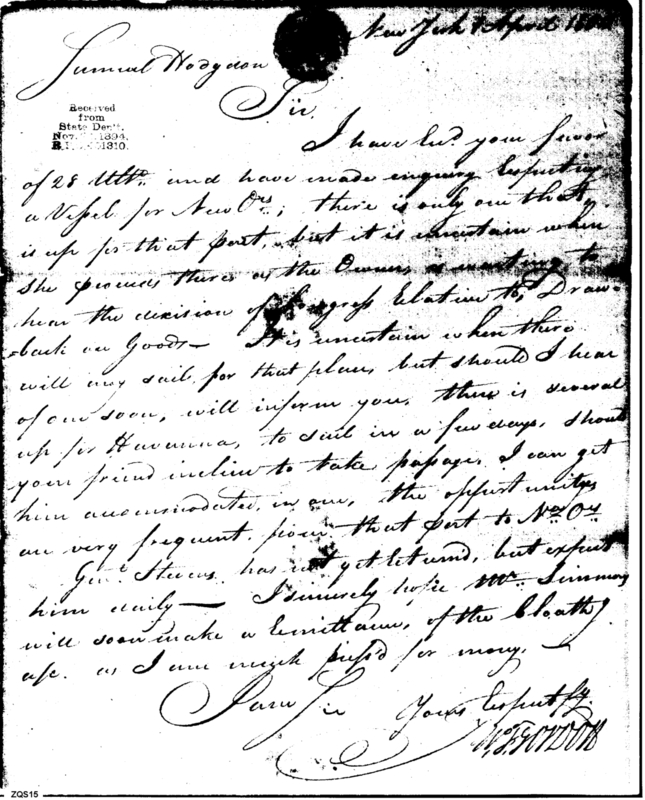 New York 7 April
Samuel Hodgdon
Sir.
Received
from
State Dep't.
Nov. 1894.
R. 1310.
I have Rec.d your favor
of 28 Ulto. and have made enquiry Respecting
a Vessel for New Ors; there is only one that
is up for that port, but it is uncertain when
she proceeds there as the Owners is waiting to
hear the decision of Congress Relative to Draw-
back on Goods— It is uncertain when there
will any sail for that place, but should I hear
of one soon, will inform you, there is several
up for Havanna, to sail in a few days, should
your friend incline to take passage, I can get
him accommodated in one, the oppertunitys
are very frequent from that port to New Ors
Genl. Stevens has not yet Returnd, but expect
him daily— I sincerely hope Mr. Simmons
will soon make a Remittance, of the Cloathg
a/c. as I am much press'd for money.—
I am Sir Yours Respectfy.
Gordon
ZQS15